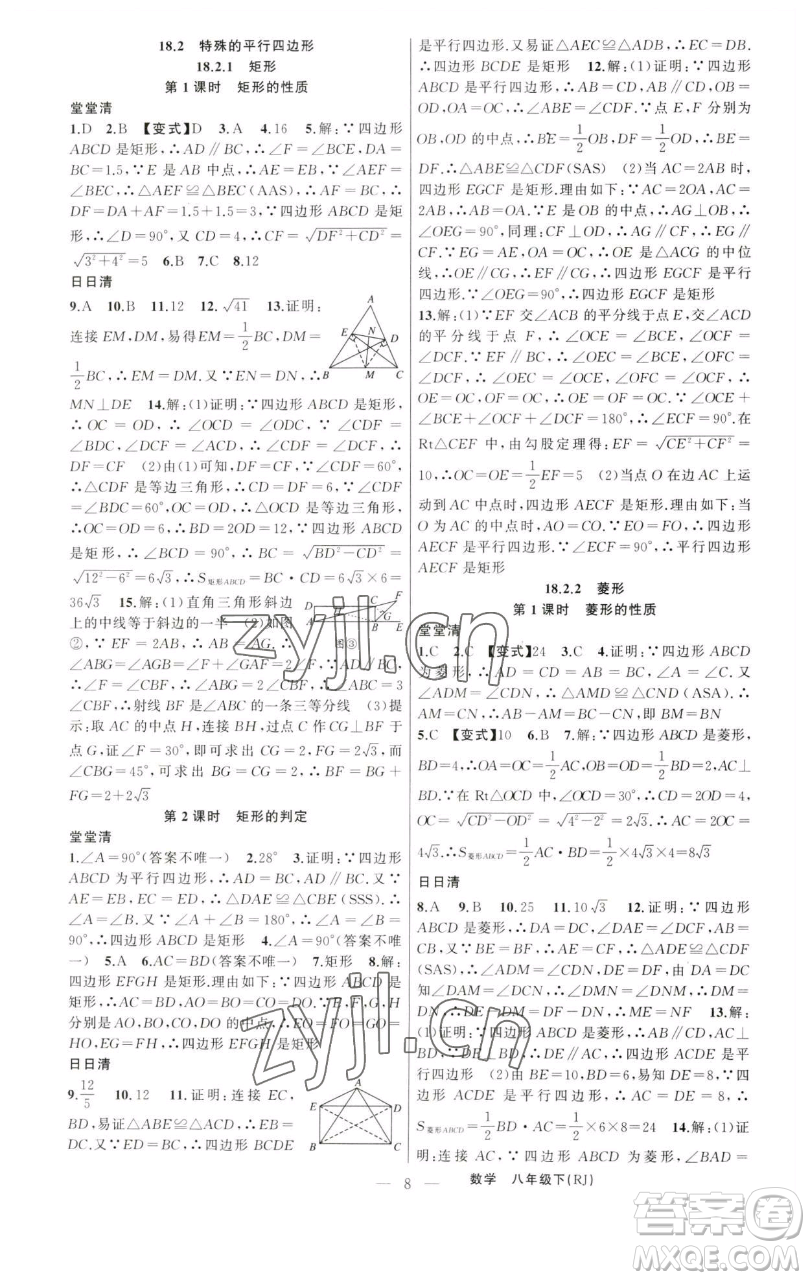 18.2 特殊的平行四边形
18.2.1 矩形
第1课时 矩形的性质
堂堂清
1.D 2.B 【变式】D 3.A 4.16 5.解:∵四边形
ABCD是矩形,∴AD∥BC,∴∠F=∠BCE,DA=
BC=1.5,∵E是AB中点,∴AE=EB,∵∠AEF=
∠BEC,∴△AEF≌△BEC(AAS),∴AF=BC,∴
DF=DA+AF=1.5+1.5=3,∵四边形ABCD是矩
形,∴∠D=90°,又CD=4,∴CF=√(DF²+CD²)=
√(3²+4²)=5 6.B 7.C 8.12
日日清
9.A 10.B 11.12 12.√41 13.证明:
连接EM,DM,易得EM=1/2BC,DM=
1/2BC,∴EM=DM.又∵EN=DN,∴
MN⊥DE 14.解:(1)证明:∵四边形ABCD是矩形,
∴OC=OD,∴∠OCD=∠ODC,∵∠CDF=
∠BDC,∠DCF=∠ACD,∴∠CDF=∠DCF,∴
DF=CF (2)由(1)可知,DF=CF,∵∠CDF=60°,
∴△CDF是等边三角形,∴CD=DF=6,∵∠CDF=
∠BDC=60°,OC=OD,∴△OCD是等边三角形,
∴OC=OD=6,∴BD=2OD=12,∵四边形ABCD
是矩形,∴∠BCD=90°,∴BC=√(BD²-CD²)=
√(12²-6²)=6√3,∴S矩形ABCD=BC·CD=6√3×6=
36√3 15.解:(1)直角三角形斜边
上的中线等于斜边的一半 (2)如图
②,∵EF=2AB,∴AB=BG,∴
图③
∠ABC=3
∠CBF,∴射线BF是∠ABC的一条三等分线 (3)提
示:取AC的中点H,连接BH,过点C作CG⊥BF于
点G,证∠F=30°,即可得CF=2CG=4,证
∠CBG=45°,可得BG=CG=2,求得FG=2√3,
FG=2+2√3
第2课时 矩形的判定
堂堂清
1.∠A=90°(答案不唯一) 2.28° 3.证明:∵四边形
ABCD为平行四边形,∴AD=BC,∠A+∠B=180°.又∵
AE=EB,EC=ED,∴△DAE≌△CBE(SSS).∴
∠A=∠B.又∵∠A+∠B=180°,∴∠A=∠B=
90°,∴四边形ABCD是矩形 4.∠A=90°(答案不唯
一) 5.A 6.AC=BD(答案不唯一) 7.矩形 8.解:
四边形EFGH是矩形.理由如下:∵四边形ABCD是
矩形,∴AC=BD,AO=BO=CO=DO.∵E,F,G,H
分别是AO,BO,CO,DO的中点,∴EO=FO=GO=
HO,∴EG=FH,∴四边形EFGH是矩形
日日清
9.12/5 10.12 11.证明:连接EC,
BD,易证△ABE≌△ACD,∴BE=
DC.又∵ED=BC,∴四边形BCDE
是平行四边形.又易证△AEC≌△ADB,∴EC=DB.
∴四边形BCDE是矩形 12.解:(1)证明:∵四边形
ABCD是平行四边形,∴AB=CD,AB∥CD,OB=
OD,OA=OC,∴∠ABE=∠CDF.∵点E,F分别为
OB,OD的中点,∴BE=1/2OB,DF=1/2OD,∴BE=
DF.∴△ABE≌△CDF(SAS) (2)当AC=2AB时,
四边形EGCF是矩形.理由如下:∵AC=2OA,AC=
2AB,∴AB=OA.∵E是OB的中点,∴AG⊥OB,∴
∠OEG=90°,同理:CF⊥OD,∴AG∥CF,∴EG∥
CF.∵EG=AE,OA=OC,∴OE是△ACG的中位
线,∴OE∥CG,∴EF∥CG,∴四边形EGCF是平行
四边形.∵∠OEG=90°,∴四边形EGCF是矩形
13.解:(1)∵EF交∠ACB的平分线于点E,交∠ACD
的平分线于点F,∴∠OCE=∠BCE,∠OCF=
∠DCF.∵EF∥BC,∴∠OEC=∠BCE,∠OFC=
∠DCF,∴∠OEC=∠OCE,∠OFC=∠OCF,∴
OE=OC,OF=OC,∴OE=OF.∵∠OCE+
∠BCE+∠OCF+∠DCF=180°,∴∠ECF=90°.在
Rt△CEF中,由勾股定理得:EF=√(CE²+CF²)=
10,∴OC=OE=1/2EF=5 (2)当点O在边AC上运
动到AC中点时,四边形AECF是矩形.理由如下:当
O为AC的中点时,AO=CO.∵EO=FO,∴四边形
AECF是平行四边形,∵∠ECF=90°,∴平行四边形
AECF是矩形
18.2.2 菱形
第1课时 菱形的性质
堂堂清
1.C 2.C 【变式】24 3.C 4.证明:∵四边形ABCD
为菱形,∴AD=CD=AB=BC,∠A=∠C.又
∠ADM=∠CDN,∴△AMD≌△CND(ASA).∴
AM=CN,∴AB-AM=BC-CN,即BM=BN
5.C 【变式】10 6.B 7.解:∵四边形ABCD是菱形,
BD=4,∴OA=OC=1/2AC,OB=OD=1/2BD=2,AC⊥
BD.在Rt△OCD中,∠OCD=30°,∴CD=2OD=4,
OC=√(CD²-OD²)=√(4²-2²)=2√3.∴AC=2OC=
4√3.∴S菱形ABCD=1/2AC·BD=1/2×4√3×4=8√3
日日清
8.A 9.B 10.25 11.10√3 12.证明:∵四边形
ABCD是菱形,∴DA=DC,∠DAE=∠DCF,AB=
CB.∵BE=BF,∴AE=CF,∴△ADE≌△CDF
(SAS),∴DE=DF.∵四边形ABCD是菱形,∴DM=
DN,∴DE-DM=DF-DN,∴ME=NF 13.解:
(1)证明:∵四边形ABCD是菱形,∴AB∥CD,AC⊥
BD.又∵DE⊥BD,∴DE∥AC,∵AE∥CD,∴四边
形ACDE是平行四边形 (2)由BE=10,BD=6,
∠BDE=90°,得DE=8.∵四边形ACDE是平行四边形,∴AC=DE=8,∴
S菱形ABCD=1/2BD·AC=1/2×6×8=24 14.解:(1)证
明:连接AC,∵四边形ABCD为菱形,∠BAD=
8 数学 八年级下(RJ)
zyjl.cn
zyjl.cn
答案圈
MXQE.COM